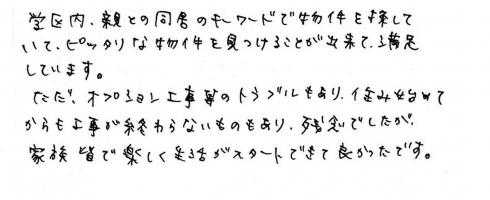 学区内、親との同居のキーワードで物件を探して
いて、ピッタリな物件を見つけることが出来て、満足
しています。
ただ、オプション工事等のトラブルもあり、住み始めて
からも工事が終わらないものもあり、残念でしたが、
家族皆で楽しく生活がスタートできて良かったです。